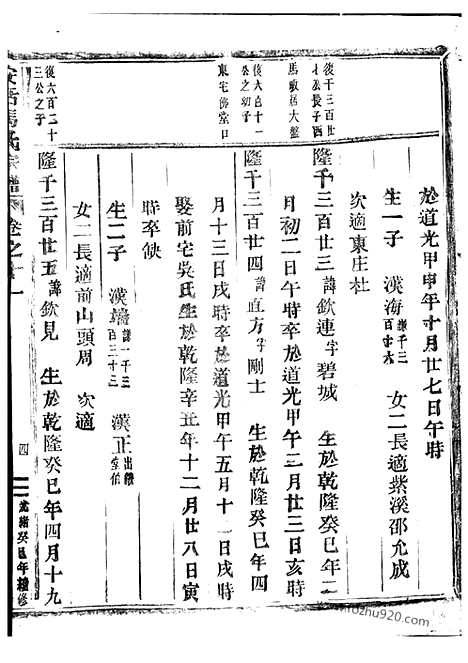 於道光甲申年十月廿七日午時
生一子　漢海讓千三百廿六　女二長適紫溪邵允成
次適東庄杜
後千三百廿七公長子西馬敬居大盤
隆千三百廿三諱欽連字碧城　生於乾隆癸巳年二
月初二日午時卒於道光甲午三月廿三日亥時
後六百十一公之幼子東宅佛堂口
隆千三百廿四諱直方字剛士　生於乾隆癸巳年四
月十三日戌時卒於道光甲午五月十一日戌時
娶前宅吳氏生於乾隆辛丑年十二月廿八日寅
時卒缺
生二子　漢𤧩讓一千三百三十三　漢正出繼堂伯
女二長適前山頭周　次適
後六百二十三公之子
隆千三百廿五諱欽見　生於乾隆癸巳年四月十九
馬氏宗譜　卷之十一　四　光緒癸巳年續修